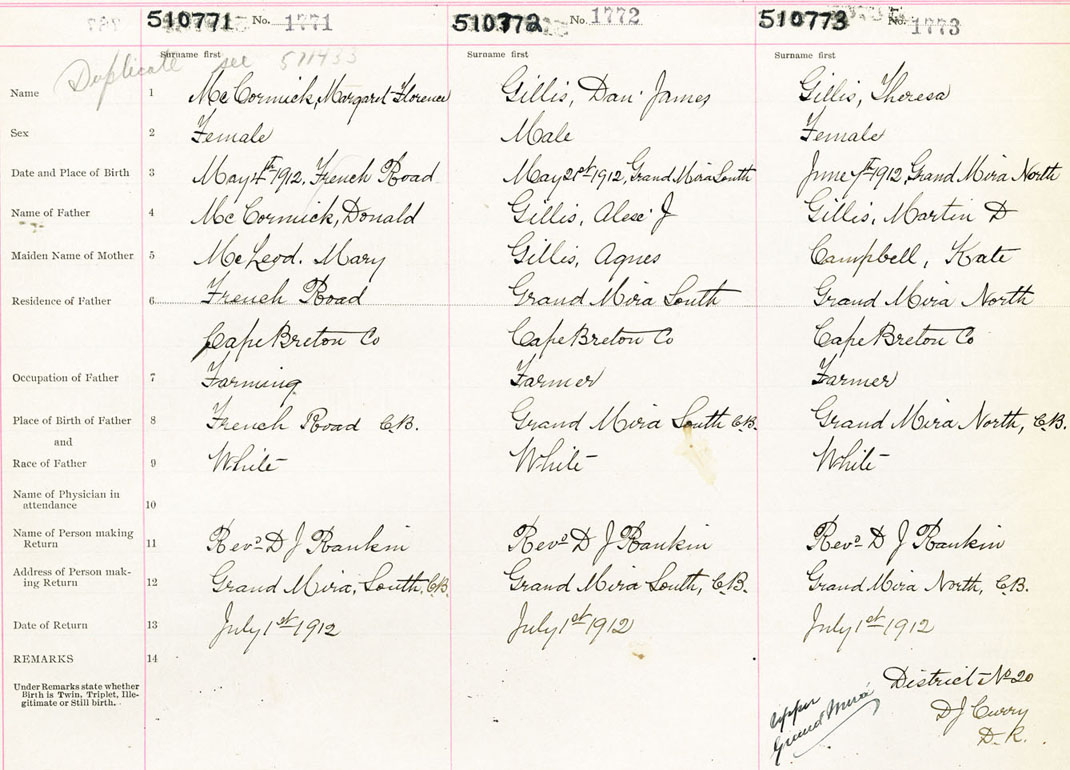 510771 No. 1771 510772 No. 1772 510773 No. 1773
Surname first Surname first Surname first
Duplicate see 511433
Name 1 McCormick, Margaret Florence Gillis, Dan James Gillis, Theresa
Sex 2 Female Male Female
Date and Place of Birth 3 May 4th 1912, French Road May 21st 1912, Grand Mira South June 7th 1912, Grand Mira North
Name of Father 4 McCormick, Donald Gillis, Alex J Gillis, Martin D
Maiden Name of Mother 5 McLeod. Mary Gillis, Agnes Campbell, Kate
Residence of Father 6 French Road Grand Mira South Grand Mira North
Cape Breton Co Cape Breton Co Cape Breton Co
Occupation of Father 7 Farming Farmer Farmer
Place of Birth of Father 8 French Road C.B. Grand Mira South C.B. Grand Mira North, C.B.
and
Race of Father 9 White White White
Name of Physician in
attendance 10
Name of Person making
Return 11 Revd D J Rankin Revd D J Rankin Revd D J Rankin
Address of Person mak-
ing Return 12 Grand Mira, South, C.B. Grand Mira South, C.B. Grand Mira North, C.B.
Date of Return 13 July 1st 1912 July 1st 1912 July 1st 1912
REMARKS 14
Under Remarks state whether
Birth is Twin, Triplet, Ille-
gitimate or Still birth.
District No 20
Upper
Grand Mira
D J Curry
D.R.